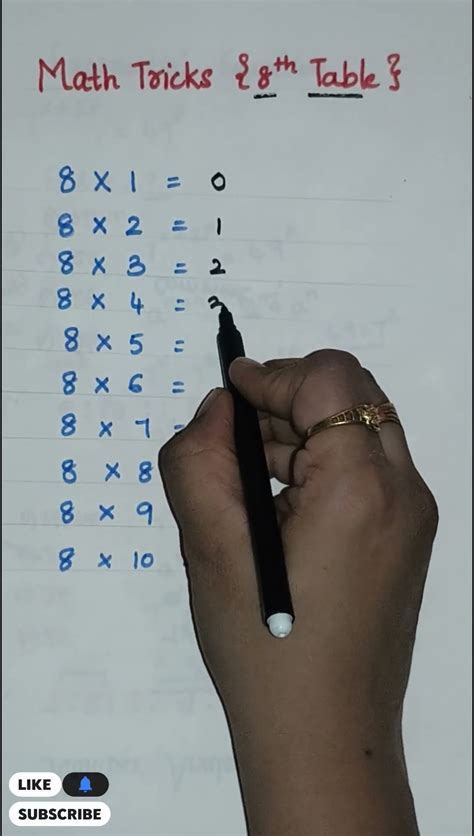 Math Tricks {8th Table}
8 × 1 = 0
8 × 2 = 1
8 × 3 = 2
8 × 4 = 3
8 × 5 =
8 × 6 =
8 × 7 =
8 × 8
8 × 9
8 × 10
LIKE
SUBSCRIBE